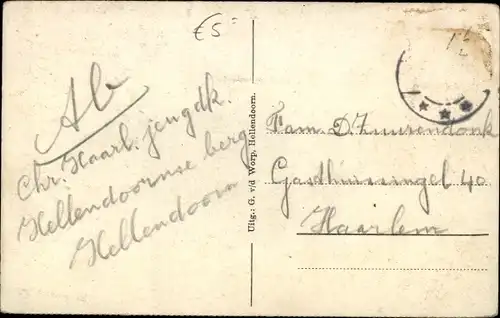 €5-
1½
Ab
Chr. Haarl. jeugdk.
Hellendoornse berg
Hellendoorn
Uitg.: G. v/d Worp, Hellendoorn.
Fam D. Zuurendonk
Gasthuissingel 40
Haarlem